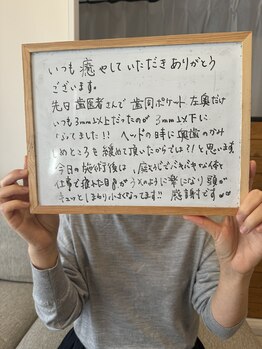 いつも癒やしていただきありがとう
ございます。
先日歯医者さんで歯周ポケット左奥だけ
いつも3mm以上だったのが3mm以下に
なってました!! ヘッドの時に奥歯のかみ
しめところを緩めて頂いたからでは?!と思います
今日の施術後は、
仕事で疲れた目がうそのように楽になり頭が
キュッとしまり小さくなってます!! 感謝です